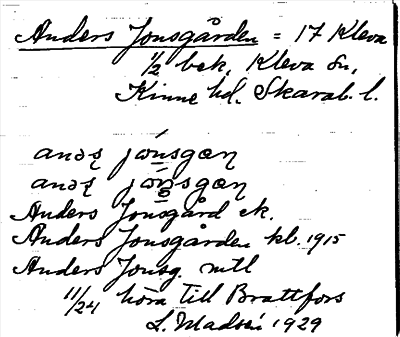 Anders Jonsgården = 17 Kleva
1/2 bek. Kleva sn,
Kinne hd. Skarab. l.
Anders Jonsgård ek.
Anders Jonsgården kl. 1915
Anders Jonsg. mtl
11/24 höra till Brattfors
L. Madsén 1929